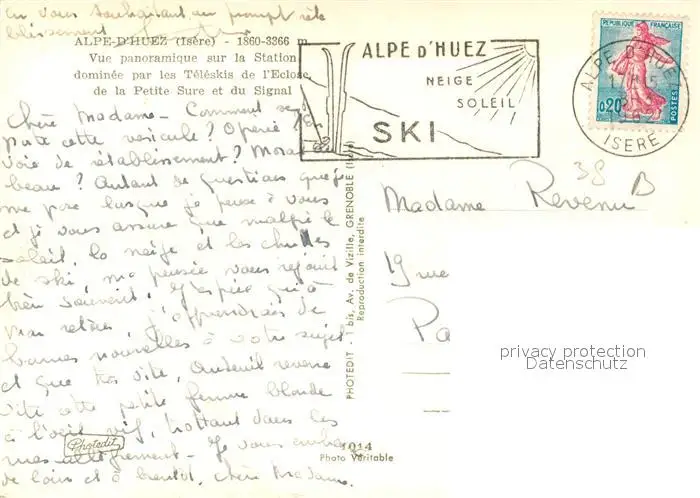 en vous souhaitant un prompt réta
blissement
ALPE-D'HUEZ (Isère) - 1860-3366 m
Vue panoramique sur la Station
dominée par les Téléskis de l'Eclose
de la Petite Sure et du Signal
ALPE D'HUEZ
NEIGE
SOLEIL
SKI
REPUBLIQUE FRANÇAISE
0,20
POSTES
ALPE D'HUEZ
ISERE
Chère Madame - Comment se
porte cette vésicule ? Opérée ? En
voie de rétablissement ? Moral
beau ? Autant de questions que je
me pose lorsque je pense à vous
et je vous assure que malgré le
soleil, la neige et les chutes
de ski, ma pensée vous rejoint
bien souvent. J'espère qu'à
mon retour, j'apprendrai de
bonnes nouvelles à votre sujet
et que très vite, Auteuil reverra
vite cette petite femme blonde
à l'oeil vif, trottant dans les
rues allègrement - Je vous embrasse
de loin et à bientôt, chère Madame.
Photedit
PHOTEDIT - 1 bis, Av. de Vizille, GRENOBLE (Isère)
Reproduction interdite
1014
Photo Véritable
38 B
Madame Revenu
19 rue
Pa
privacy protection
durch www.oldthing.de